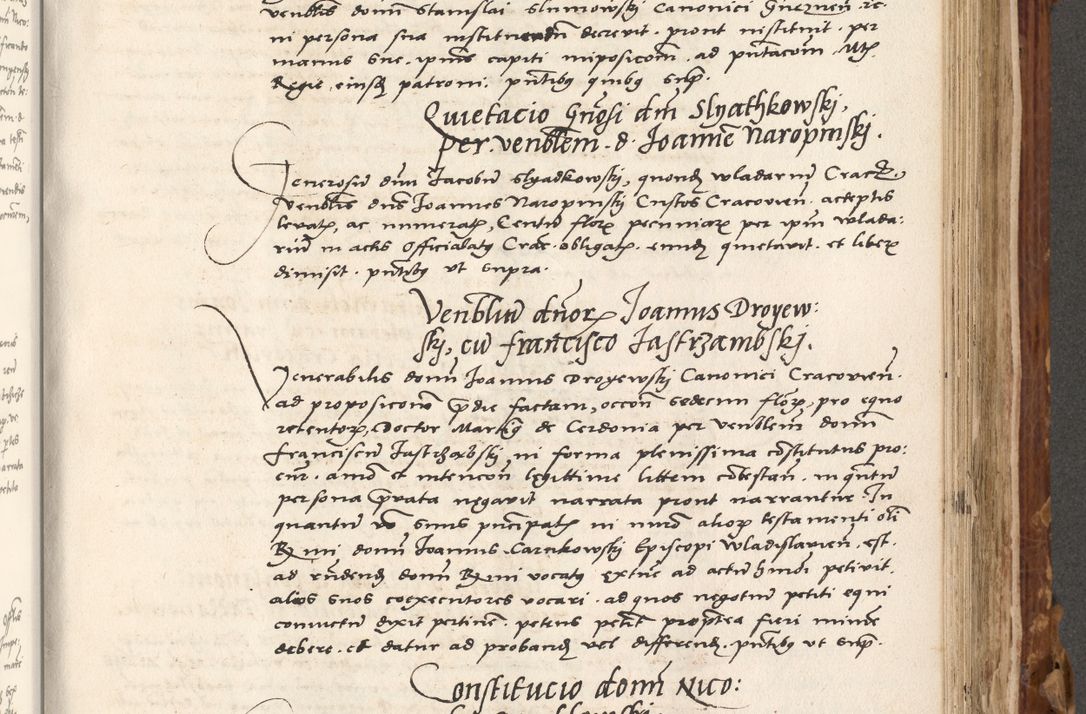 venblis domini Stanislai Slumowskj Canonici Gneznen. re:
in persona sua instituendum decrevit. prout instituit. per
manus sue. ipius capiti imposicom. ad pntacom. Mtis
Regie. eiusdem patroni. pntibus quibus supra.
Quietacio Gnosi dni Slyathkowskj,
per venblem. d. Joannem Naropinskj.
Generosum dnm Jacobum Slyadkowskj, quondam wladarium Crac.
venblis dns Joannes Naropinskj Custos Cracovien. acceptis
levatis, ac numeratis, Centum floris pecuniarum per ipm wlada:
rium in actis Officialatus Crac. obligatis. eundem quietavit. et liberum
dimisit. pntibus ut supra.
Venblium dnorum Joannis Droyew:
skj, cum Francisco Jastrzambskj.
Venerabilis domini Joannis Droyewskj Canonici Cracovien.
ad proposicom pridie factam, occon. sedecim floris, pro equo
retentorum, Doctor Martinus de Cerdonia per venblem dominum
Franciscum Jastrzabskj, in forma plenissima constitutus pro:
cur. animo et intencon. legittime littem contestan. in quantum
persona privata negavit narrata prout narrantur. In
quantum vero suus principalis in numero aliorum testamenti olim
Rmi domini Joannis Carnkowskj Episcopi Wladislavien. est.
ad rndendum domini Rmi vocatus extitit ad actum hmoi petivit.
alios suos coexecutores vocari. ad quos negotium petiti equi
coniunctum dixit pertinere. petens petit propterea fieri minime
debere. et datur ad probandum vel differendum. pntibus ut supra.
Constitucio domini Nico: